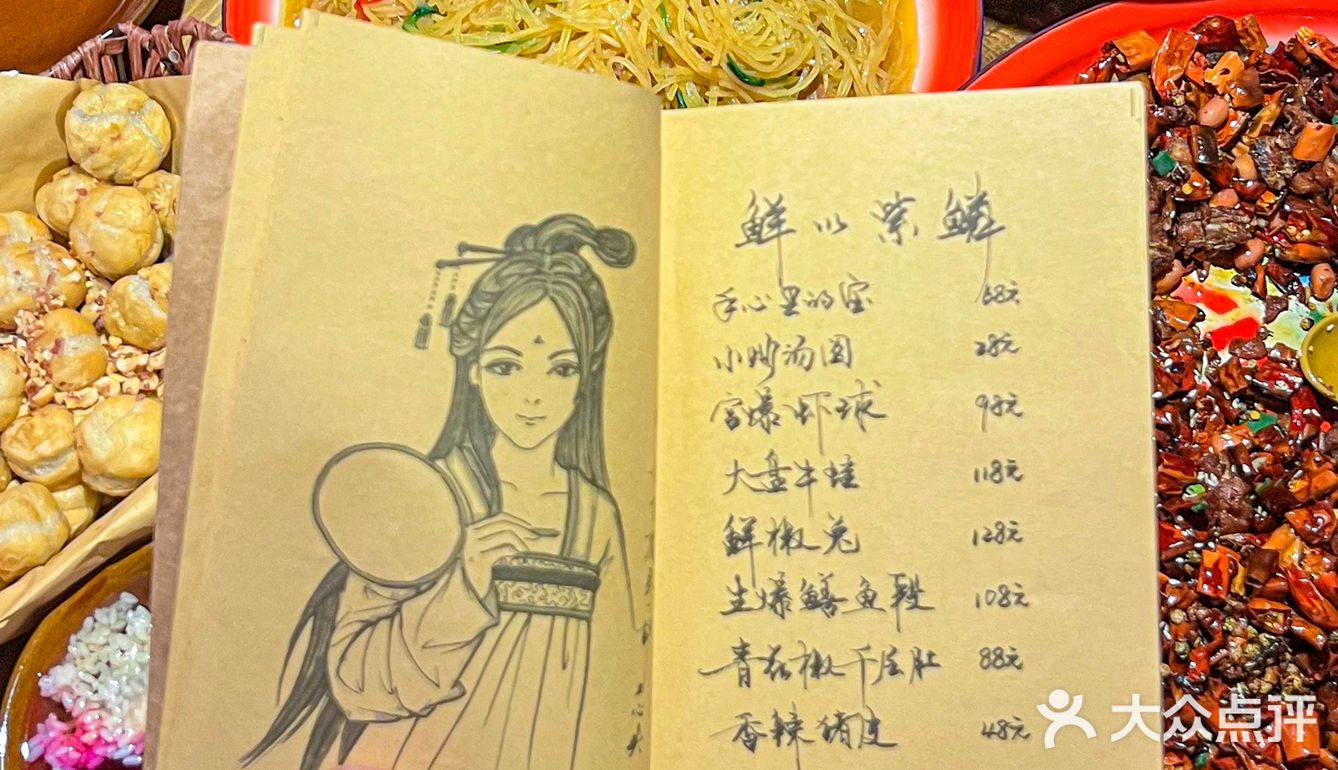 鲜以紫鳝
手心里的宝 68元
小炒汤圆 28元
宫爆虾球 98元
大盘牛蛙 118元
鲜椒兔 128元
生爆鳝鱼段 108元
青花椒千层肚 88元
香辣猪皮 48元
大众点评